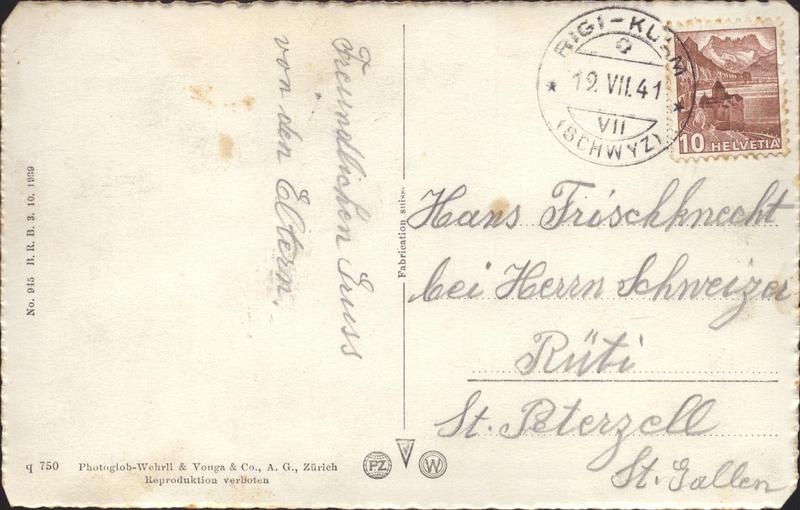 Freundlichen Gruss
von den Eltern.
No. 945 B. R. B. 3. 10. 1939
q 750 Photoglob-Wehrli & Vouga & Co., A. G., Zürich
Reproduktion verboten
Fabrication suisse
PZ
W
RIGI-KULM
12.VII.41
VII
(SCHWYZ)
10 HELVETIA
Hans Frischknecht
bei Herrn Schweizer
Rüti
St. Peterzell
St. Gallen